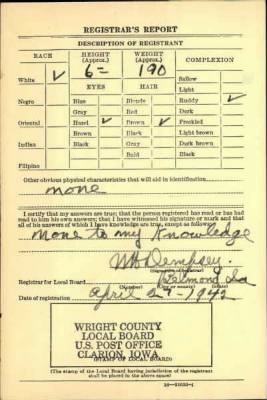 REGISTRAR'S REPORT
DESCRIPTION OF REGISTRANT
RACE HEIGHT (Approx.) WEIGHT (Approx.) COMPLEXION
White ✓ 6- 190 Sallow
Light
EYES HAIR Ruddy ✓
Negro Blue Blonde Dark
Gray Red Freckled
Oriental Hazel ✓ Brown ✓ Light brown
Brown Black Dark brown
Indian Black Gray Black
Bald
Filipino
Other obvious physical characteristics that will aid in identification
none
I certify that my answers are true; that the person registered has read or has had read to him his own answers; that I have witnessed his signature or mark and that all of his answers of which I have knowledge are true, except as follows:
None to my Knowledge
Dempsey
(Signature of registrar)
Registrar for Local Board Belmond Ia
Date of registration April 27-1942
WRIGHT COUNTY
LOCAL BOARD
U.S. POST OFFICE
CLARION, IOWA
(STAMP OF LOCAL BOARD)
(The stamp of the Local Board having jurisdiction of the registrant shall be placed in the above space)